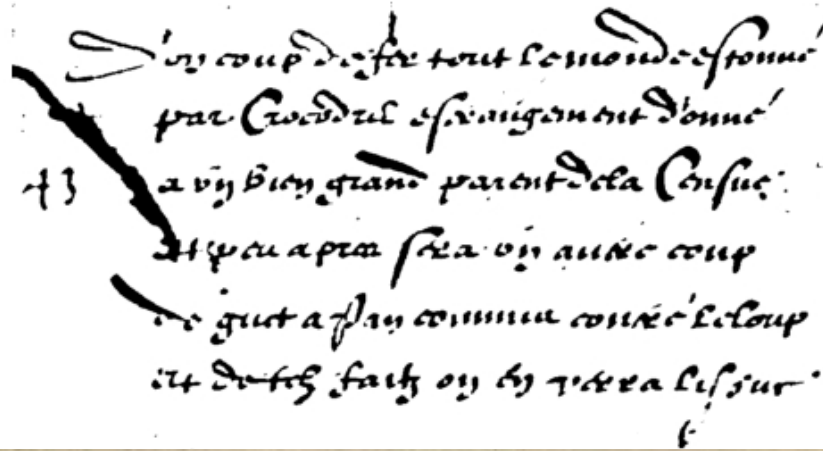 D'un coup de fer tout le monde estonné
par Crocodril estrangement donné
43 a un bien grand parent de la Censue
et peu apres sera un autre coup
de guet a pan commis contre le loup
et de telz faitz on en verra lissue